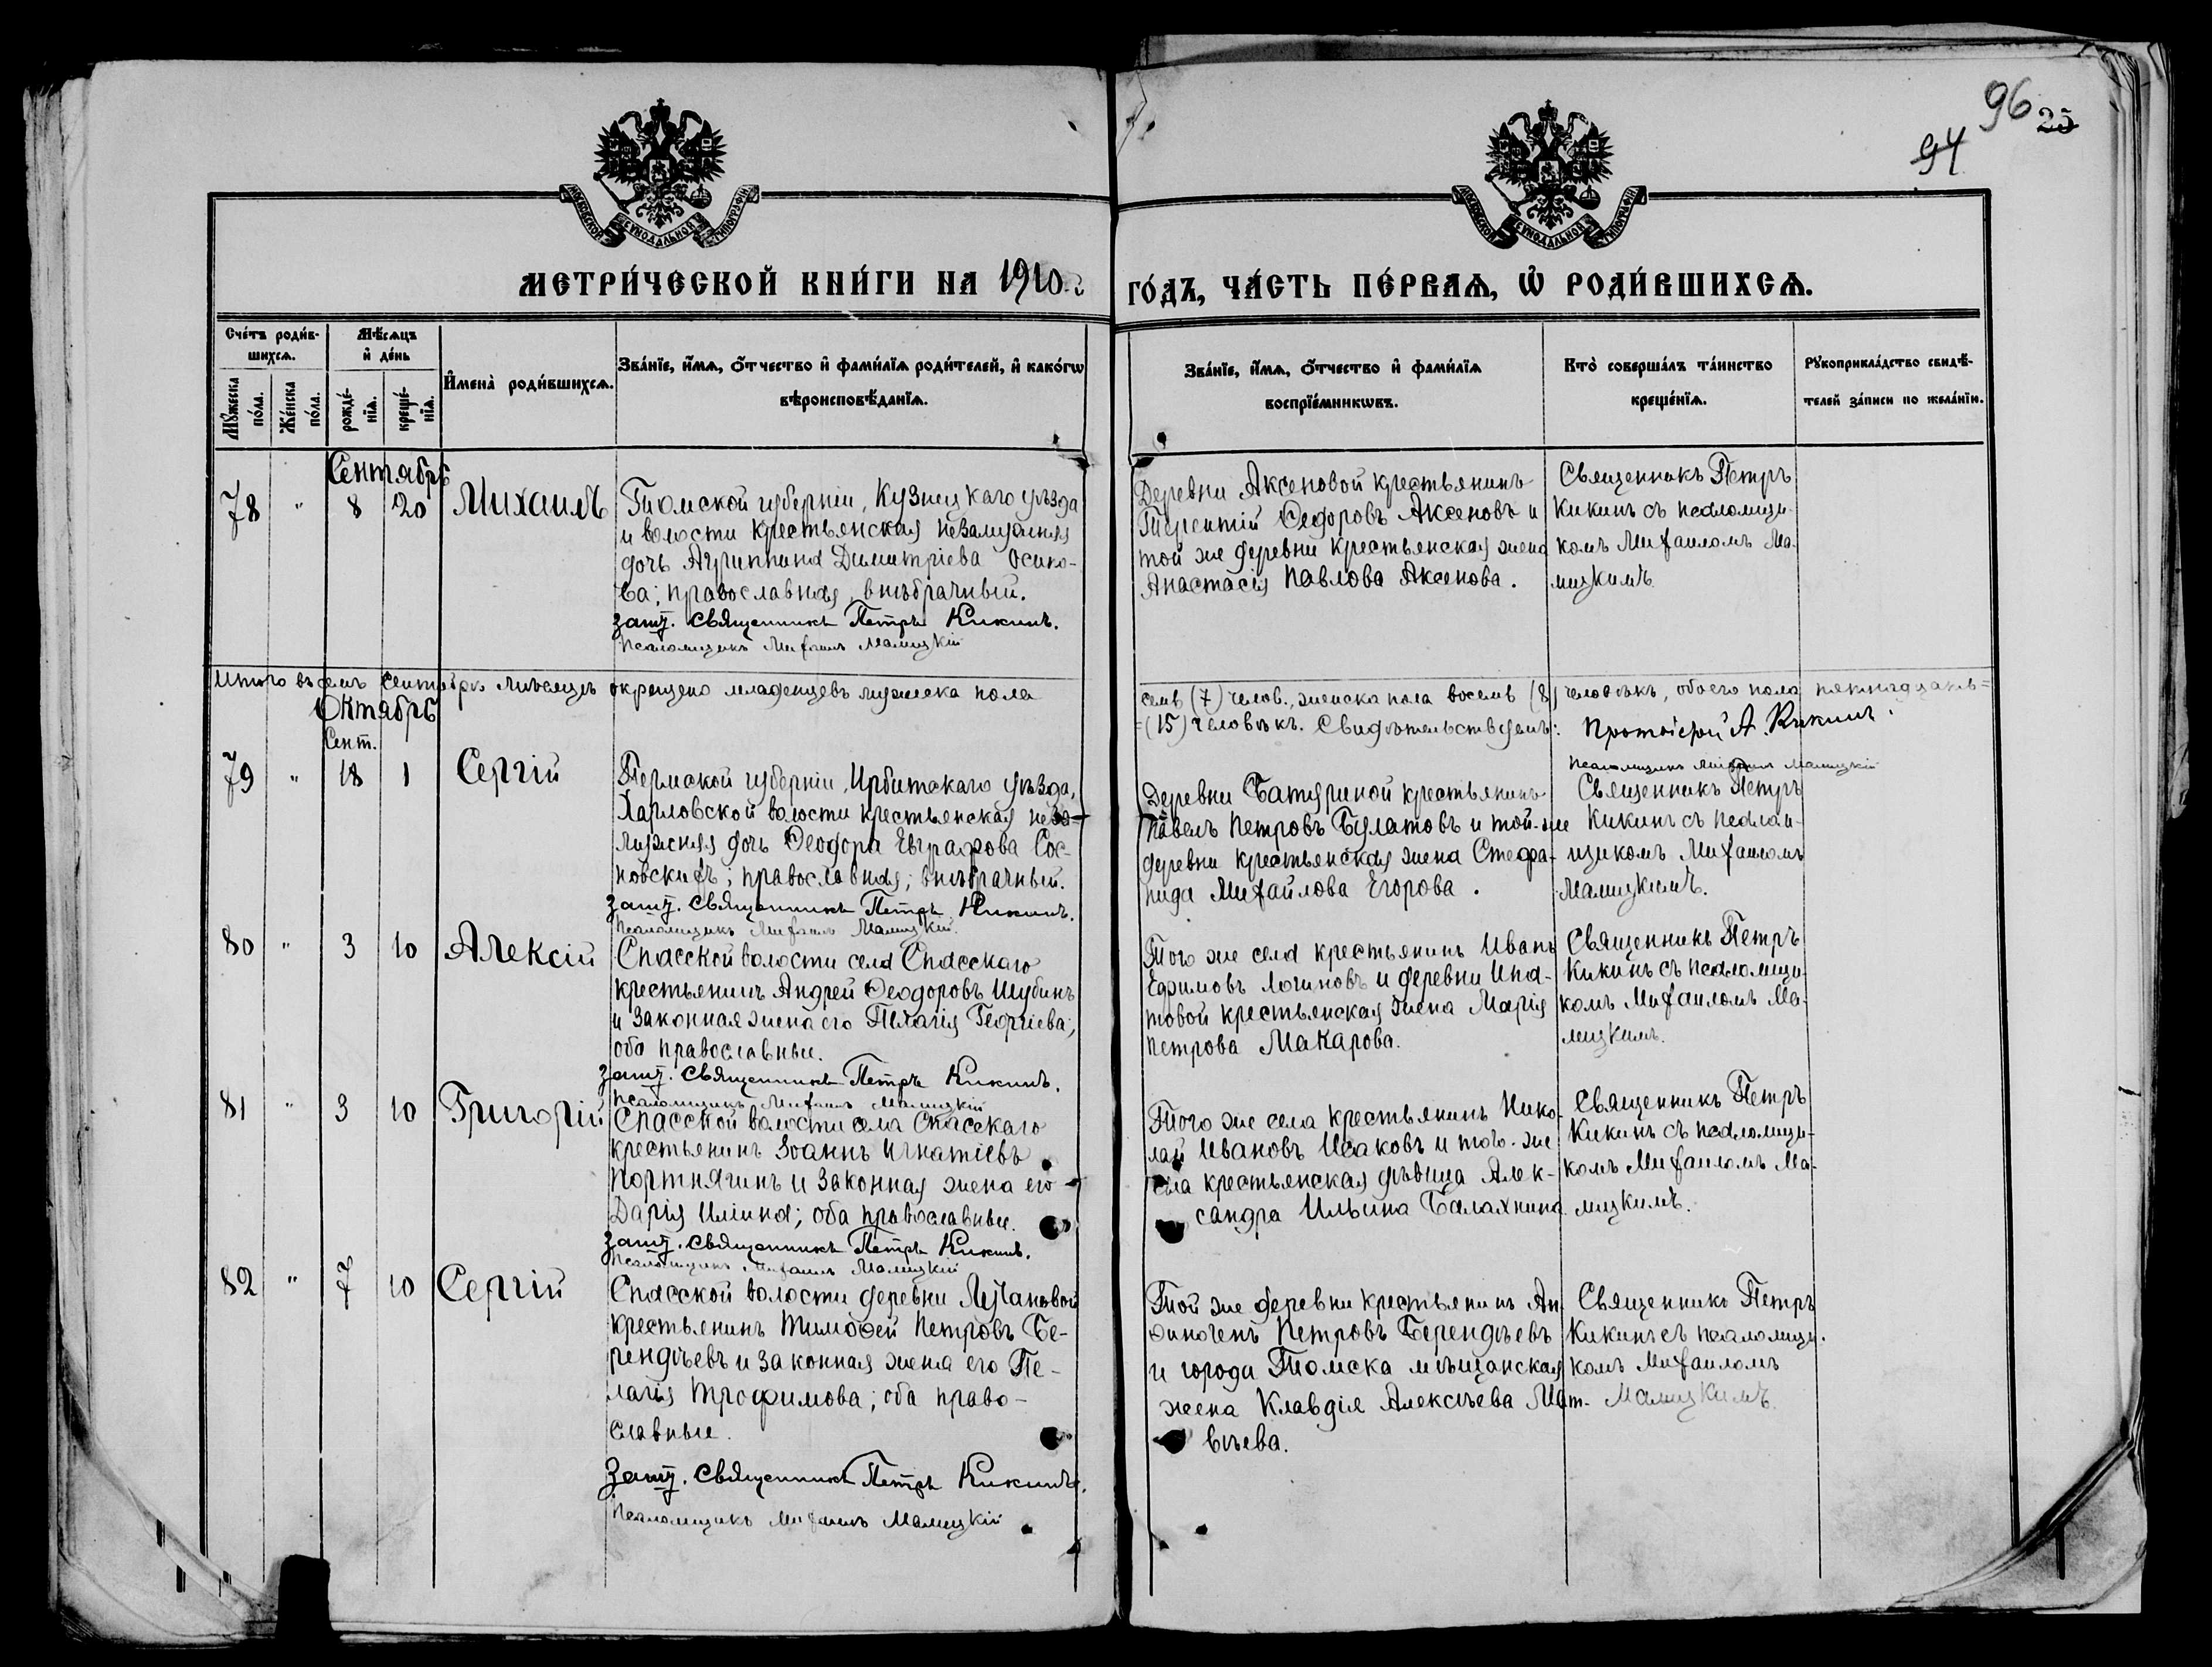 96 25
94
МОСКОВСКОЙ СѴНОДАЛЬНОЙ ТИПОГРАФІИ
МОСКОВСКОЙ СѴНОДАЛЬНОЙ ТИПОГРАФІИ
МЕТРИ́ЧЕСКОЙ КНИ́ГИ НА 1910 г
ГО́ДЪ, ЧА́СТЬ ПЕ́РВАѦ, Ѿ РОДИ́ВШИХСѦ.
Сче́тъ роди́в-
шихсѧ.
Мѣ́сѧцъ
и҆ де́нь
Мꙋ́жеска по́ла.
Же́нска по́ла.
рожде́-нїѧ.
креще́-нїѧ.
И҆мена̀ роди́вшихсѧ.
Зва́нїе, и҆́мѧ, ѻ҆́тчество и҆ фами́лїѧ роди́телей, и҆ како́гѡ
вѣроисповѣ́данїѧ.
Зва́нїе, и҆́мѧ, ѻ҆́тчество и҆ фами́лїѧ
воспрїе́мникѡвъ.
Кто̀ соверша́лъ та́инство
креще́нїѧ.
Рꙋкоприкла́дство свидѣ́-
телей за́писи по жела́нїю.
Сентябрь
78 " 8 20 Михаилъ
Томской губерніи, Кузнецкаго уѣзда
и волости крестьянская незамужняя
дочь Агриппина Димитріева Осипо-
ва; православная, внѣбрачный.
Священникъ Петръ Кикинъ.
Псаломщикъ Михаилъ Малицкій
Деревни Аксеновой крестьянинъ
Терентій Ѳедоровъ Аксеновъ и
той же деревни крестьянская жена
Анастасія Павлова Аксенова.
Священникъ Петръ
Кикинъ съ псаломщи-
комъ Михаиломъ Ма-
лицкимъ.
Итого въ семъ Сентябрѣ мѣсяцѣ окрещено младенцевъ мужеска пола
семь (7) челов., женска пола восемь (8) человѣкъ, обоего пола пятнадцать=
=(15) человѣкъ. Свидѣтельствуемъ: Протоіерей А. Кикинъ.
Псаломщикъ Михаилъ Малицкій
Октябрь
Сент.
79 " 18 1 Сергій
Пермской губерніи, Ирбитскаго уѣзда,
Харловской волости крестьянская неза-
мужняя дочь Ѳеодора Евграфова Сос-
новскихъ; православная; внѣбрачный.
Священникъ Петръ Кикинъ.
Псаломщикъ Михаилъ Малицкій.
Деревни Батуриной крестьянинъ
Павелъ Петровъ Булатовъ и той-же
деревни крестьянская жена Стефа-
нида Михайлова Егорова.
Священникъ Петръ
Кикинъ съ псалом-
щикомъ Михаиломъ
Малицкимъ.
80 " 3 10 Алексій
Спасской волости села Спасскаго
крестьянинъ Андрей Ѳеодоровъ Шубинъ
и законная жена его Пелагія Георгіева;
оба православные.
Священникъ Петръ Кикинъ.
Псаломщикъ Михаилъ Малицкій
Того же села крестьянинъ Иванъ
Ефимовъ Логиновъ и деревни Ипа-
товой крестьянская жена Марія
Петрова Макарова.
Священникъ Петръ
Кикинъ съ псаломщи-
комъ Михаиломъ Ма-
лицкимъ.
81 " 3 10 Григорій
Спасской волости села Спасскаго
крестьянинъ Іоаннъ Игнатіевъ
Портнягинъ и законная жена его
Дарія Иліина; оба православные.
Священникъ Петръ Кикинъ.
Псаломщикъ Михаилъ Малицкій
Того же села крестьянинъ Нико-
лай Ивановъ Исаковъ и того-же
села крестьянская дѣвица Алек-
сандра Ильина Балахнина.
Священникъ Петръ
Кикинъ съ псаломщи-
комъ Михаиломъ Ма-
лицкимъ.
82 " 7 10 Сергій
Спасской волости деревни Лучановой
крестьянинъ Тимоѳей Петровъ Бе-
рендѣевъ и законная жена его Пе-
лагія Трофимова; оба право-
славные.
Священникъ Петръ Кикинъ.
Псаломщикъ Михаилъ Малицкій
Той же деревни крестьянинъ Ан-
ѳиногенъ Петровъ Берендѣевъ
и города Томска мѣщанская
жена Клавдія Алексѣева Мат-
вѣева.
Священникъ Петръ
Кикинъ съ псаломщи-
комъ Михаиломъ
Малицкимъ.